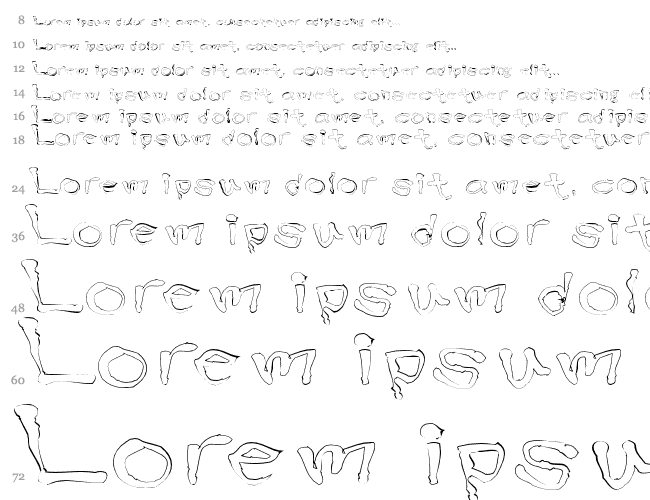 8 Lorem ipsum dolor sit amet, consectetuer adipiscing elit...
10 Lorem ipsum dolor sit amet, consectetuer adipiscing elit...
12 Lorem ipsum dolor sit amet, consectetuer adipiscing elit...
14 Lorem ipsum dolor sit amet, consectetuer adipiscing el
16 Lorem ipsum dolor sit amet, consectetuer adipis
18 Lorem ipsum dolor sit amet, consectetuer
24 Lorem ipsum dolor sit amet, con
36 Lorem ipsum dolor sit
48 Lorem ipsum dol
60 Lorem ipsum
72 Lorem ipsu